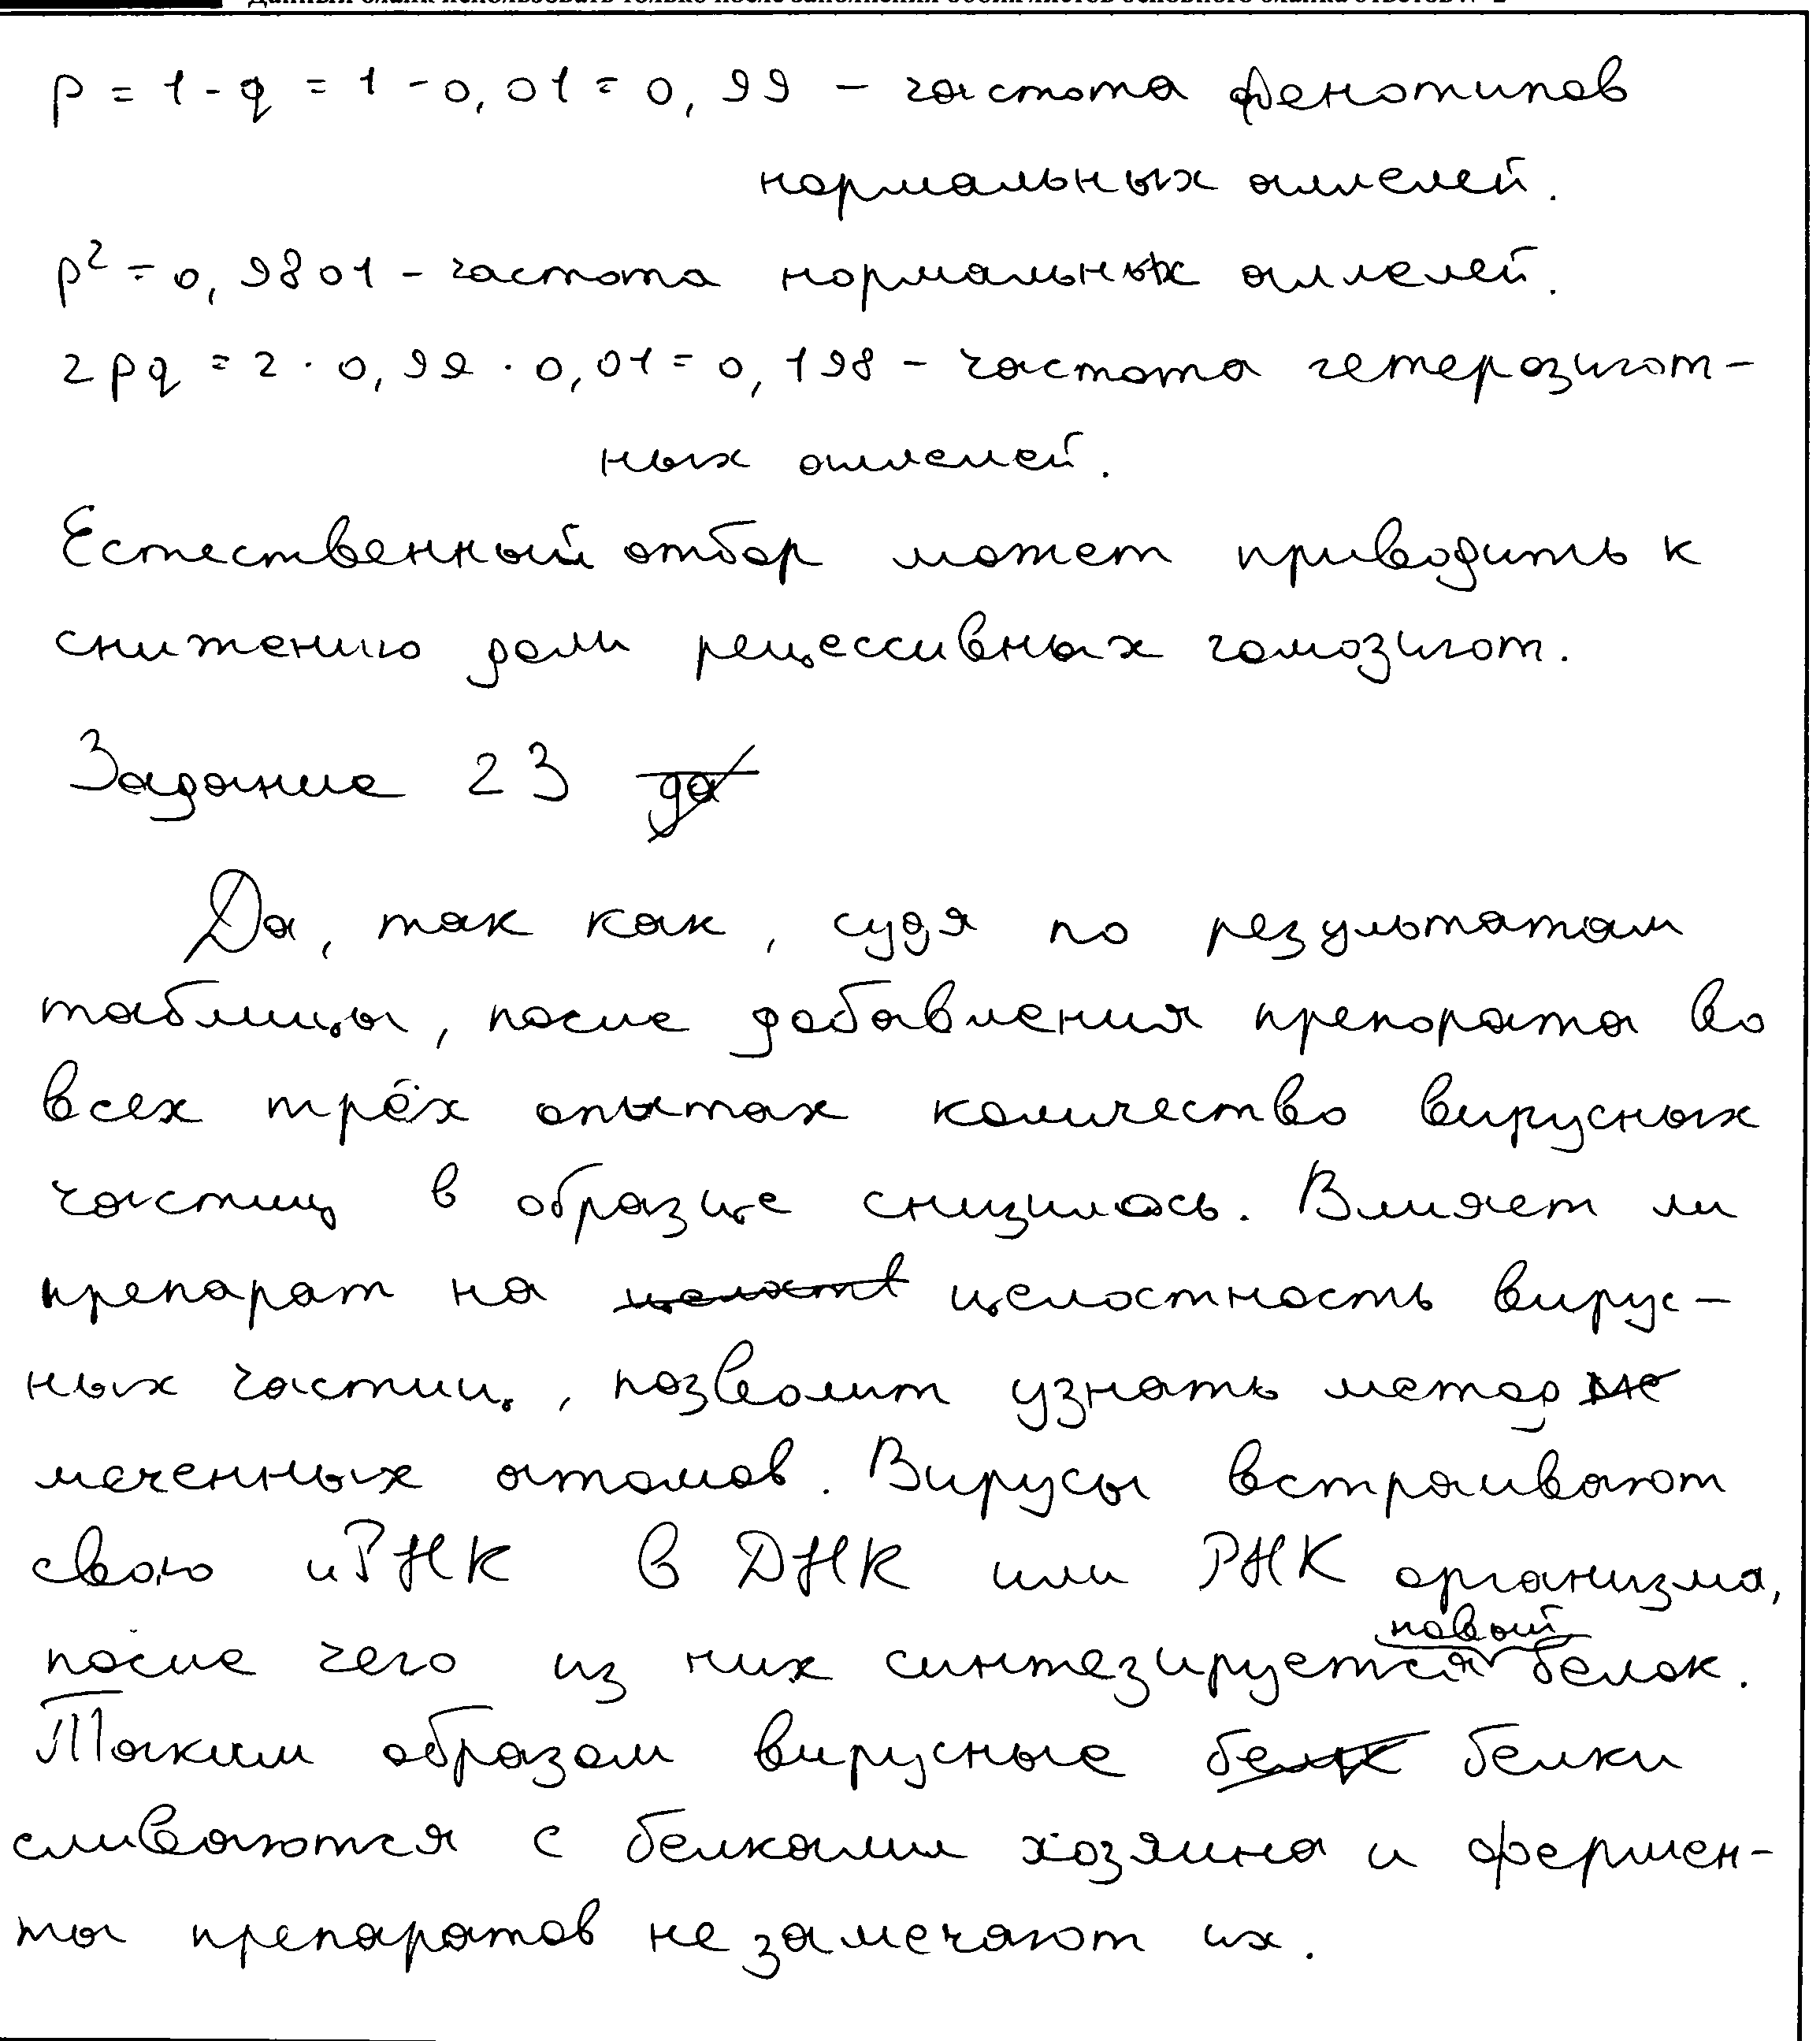 p = 1 - q = 1 - 0,01 = 0,99 – частота фенотипов
нормальных аллелей.
p² = 0,9801 – частота нормальных аллелей.
2pq = 2 · 0,99 · 0,01 = 0,198 – частота гетерозигот-
ных аллелей.
Естественный отбор может приводить к
снижению доли рецессивных гомозигот.
Задание 23 да
Да, так как, судя по результатам
таблицы, после добавления препората во
всех трёх опытах количество вирусных
частиц в образце снизилось. Влияет ли
препарат на целостность вирус-
ных частиц, позволит узнать метод ме
меченных атомов. Вирусы встраивают
свою иРНК в ДНК или РНК организма,
после чего из них синтезируется новый белок.
Таким образом вирусные белк белки
сливаются с белками хозяина и фермен-
ты препаратов не замечают их.